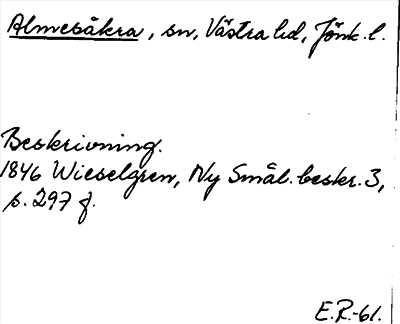 Almesåkra, sn, Västra hd, Jönk. l.
Beskrivning.
1846 Wieselgren, Ny Smål. beskr. 3,
s. 297 f.
E.R.-61.